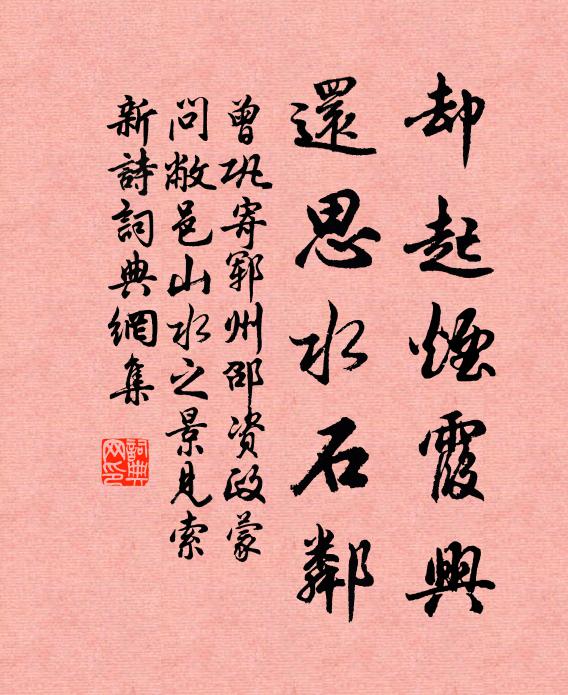 却起煙霞興
還思水石鄰
曾巩寄鄆州邵资政蒙
问敝邑山水之景見索
新詩詞典網集
詞典网印